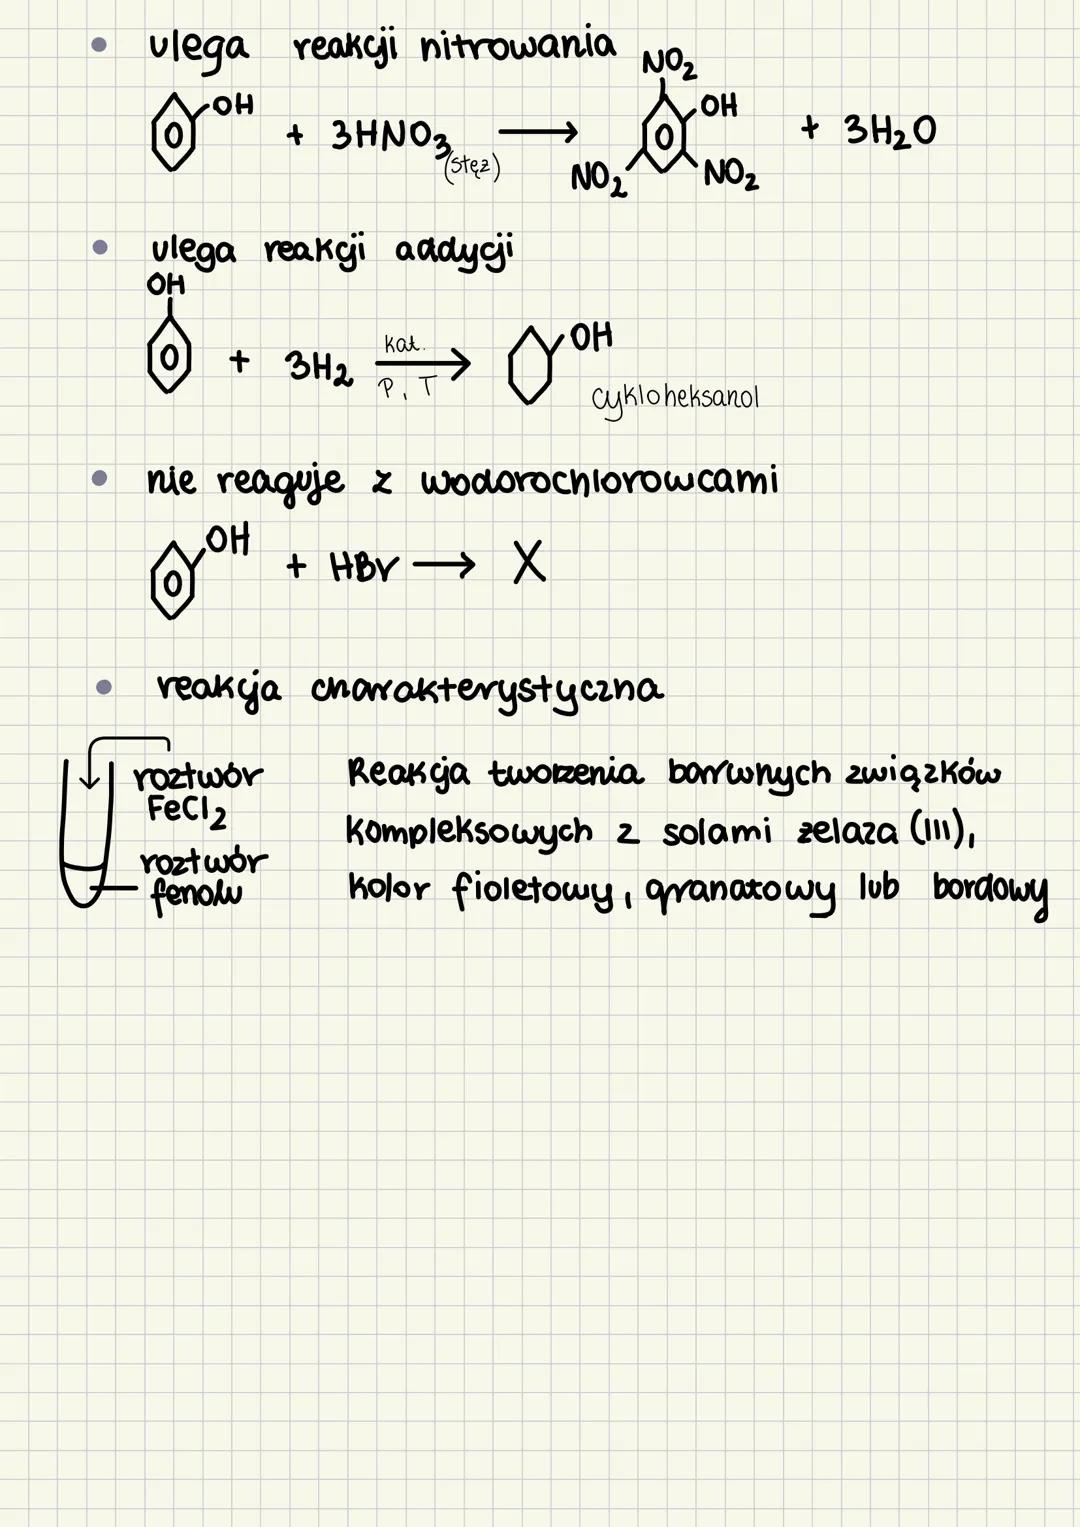 • ulega reakcji nitrowania
OH + 3HNO₃ (stęż) → NO₂ OH NO₂ NO₂ + 3H₂O
• ulega reakcji addycji
OH + 3H₂ kat. P, T → OH
cykloheksanol
• nie reaguje z wodorochlorowcami
OH + HBr → X
• reakcja charakterystyczna
roztwór
FeCl₂
roztwór
fenolu
Reakcja tworzenia barwnych związków
kompleksowych z solami żelaza (III),
kolor fioletowy, granatowy lub bordowy